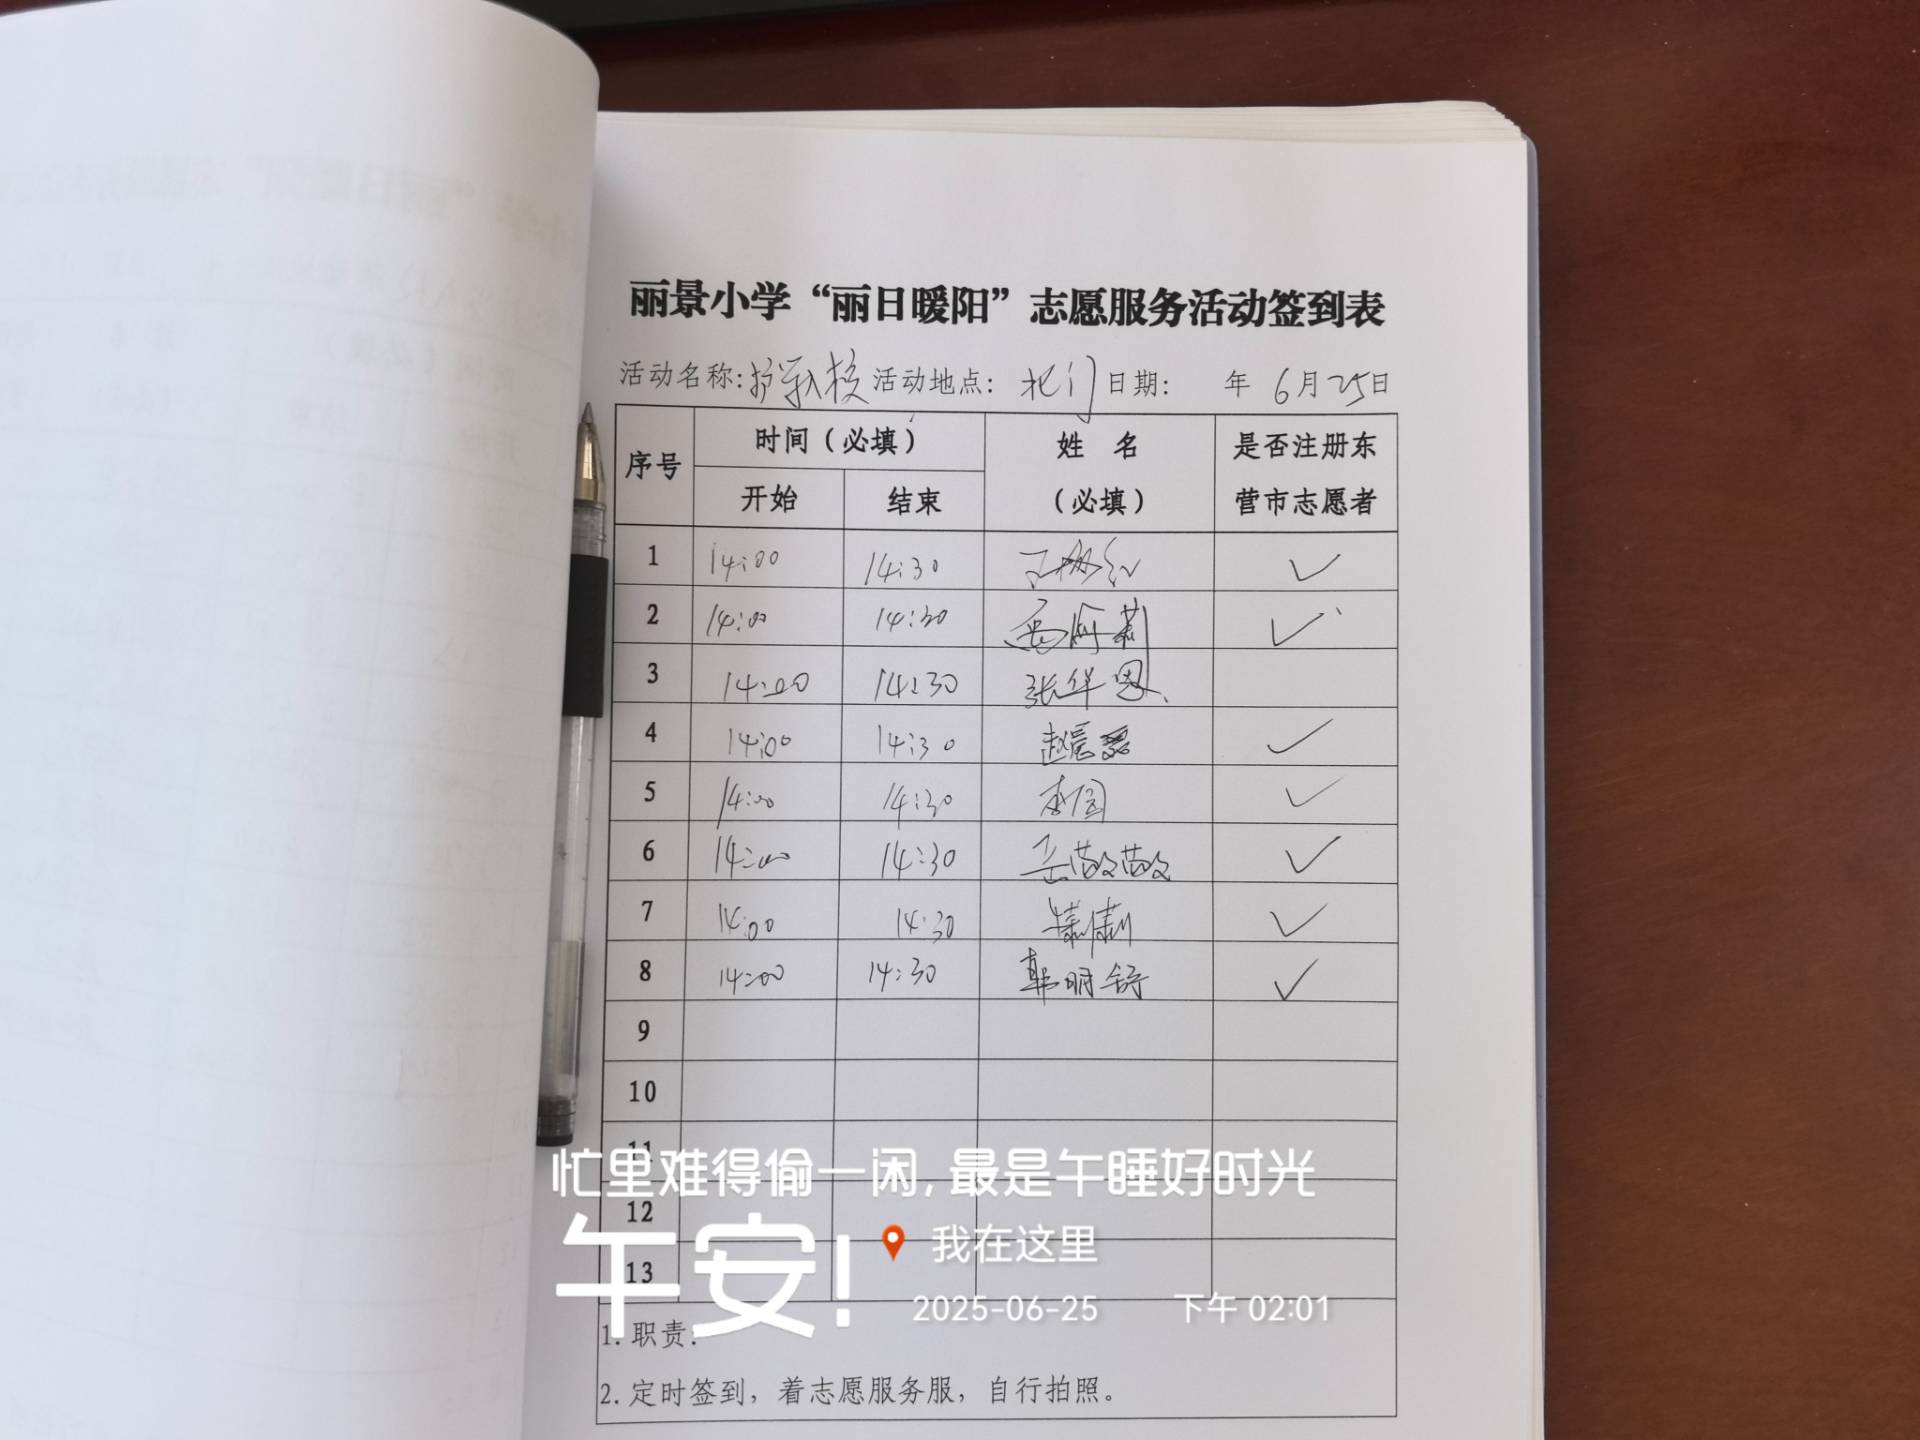 丽景小学“丽日暖阳”志愿服务活动签到表
活动名称:护学入校 活动地点: 北门 日期: 年 6月25日
序号 时间(必填) 姓 名 (必填) 是否注册东营市志愿者
开始 结束
1 14:00 14:30 ✓
2 14:00 14:30 ✓
3 14:00 14:30 张华恩
4 14:00 14:30 ✓
5 14:00 14:30 ✓
6 14:00 14:30 岳敬敬 ✓
7 14:00 14:30 ✓
8 14:00 14:30 韩明舒 ✓
9
10
11
12
13
1. 职责:
2. 定时签到，着志愿服务服，自行拍照。
忙里难得偷一闲, 最是午睡好时光
午安!
我在这里
2025-06-25 下午 02:01